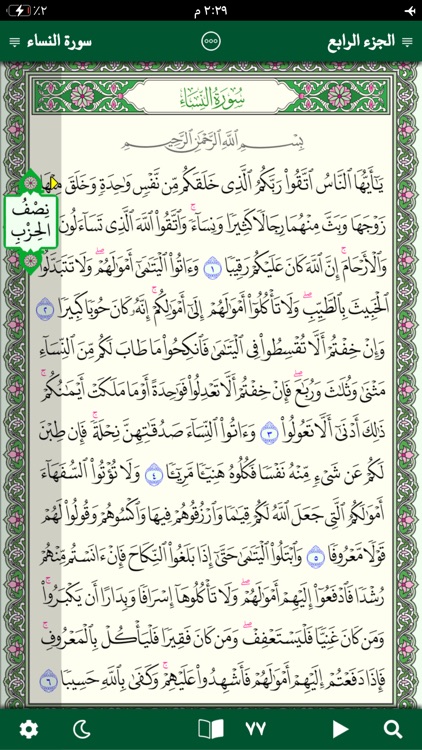 ٪٢
٢:٢٩ م
الجزء الرابع
سورة النساء
سُورَةُ النِّسَاءِ
بِسْمِ ٱللَّهِ ٱلرَّحْمَٰنِ ٱلرَّحِيمِ
يَٰٓأَيُّهَا ٱلنَّاسُ ٱتَّقُوا۟ رَبَّكُمُ ٱلَّذِى خَلَقَكُم مِّن نَّفْسٍ وَٰحِدَةٍ وَخَلَقَ مِنْهَا
زَوْجَهَا وَبَثَّ مِنْهُمَا رِجَالًا كَثِيرًا وَنِسَآءً ۚ وَٱتَّقُوا۟ ٱللَّهَ ٱلَّذِى تَسَآءَلُونَ
وَٱلْأَرْحَامَ ۚ إِنَّ ٱللَّهَ كَانَ عَلَيْكُمْ رَقِيبًا ١ وَءَاتُوا۟ ٱلْيَتَٰمَىٰٓ أَمْوَٰلَهُمْ ۖ وَلَا تَتَبَدَّلُوا۟
ٱلْخَبِيثَ بِٱلطَّيِّبِ ۖ وَلَا تَأْكُلُوٓا۟ أَمْوَٰلَهُمْ إِلَىٰٓ أَمْوَٰلِكُمْ ۚ إِنَّهُۥ كَانَ حُوبًا كَبِيرًا ٢
وَإِنْ خِفْتُمْ أَلَّا تُقْسِطُوا۟ فِى ٱلْيَتَٰمَىٰ فَٱنكِحُوا۟ مَا طَابَ لَكُم مِّنَ ٱلنِّسَآءِ
مَثْنَىٰ وَثُلَٰثَ وَرُبَٰعَ ۖ فَإِنْ خِفْتُمْ أَلَّا تَعْدِلُوا۟ فَوَٰحِدَةً أَوْ مَا مَلَكَتْ أَيْمَٰنُكُمْ ۚ
ذَٰلِكَ أَدْنَىٰٓ أَلَّا تَعُولُوا۟ ٣ وَءَاتُوا۟ ٱلنِّسَآءَ صَدُقَٰتِهِنَّ نِحْلَةً ۚ فَإِن طِبْنَ
لَكُمْ عَن شَىْءٍ مِّنْهُ نَفْسًا فَكُلُوهُ هَنِيٓـًٔا مَّرِيٓـًٔا ٤ وَلَا تُؤْتُوا۟ ٱلسُّفَهَآءَ
أَمْوَٰلَكُمُ ٱلَّتِى جَعَلَ ٱللَّهُ لَكُمْ قِيَٰمًا وَٱرْزُقُوهُمْ فِيهَا وَٱكْسُوهُمْ وَقُولُوا۟ لَهُمْ
قَوْلًا مَّعْرُوفًا ٥ وَٱبْتَلُوا۟ ٱلْيَتَٰمَىٰ حَتَّىٰٓ إِذَا بَلَغُوا۟ ٱلنِّكَاحَ فَإِنْ ءَانَسْتُم مِّنْهُمْ
رُشْدًا فَٱدْفَعُوٓا۟ إِلَيْهِمْ أَمْوَٰلَهُمْ ۖ وَلَا تَأْكُلُوهَآ إِسْرَافًا وَبِدَارًا أَن يَكْبَرُوا۟ ۚ
وَمَن كَانَ غَنِيًّا فَلْيَسْتَعْفِفْ ۖ وَمَن كَانَ فَقِيرًا فَلْيَأْكُلْ بِٱلْمَعْرُوفِ ۚ
فَإِذَا دَفَعْتُمْ إِلَيْهِمْ أَمْوَٰلَهُمْ فَأَشْهِدُوا۟ عَلَيْهِمْ ۚ وَكَفَىٰ بِٱللَّهِ حَسِيبًا ٦
نِصْفُ
الحِزْبِ
٧٧